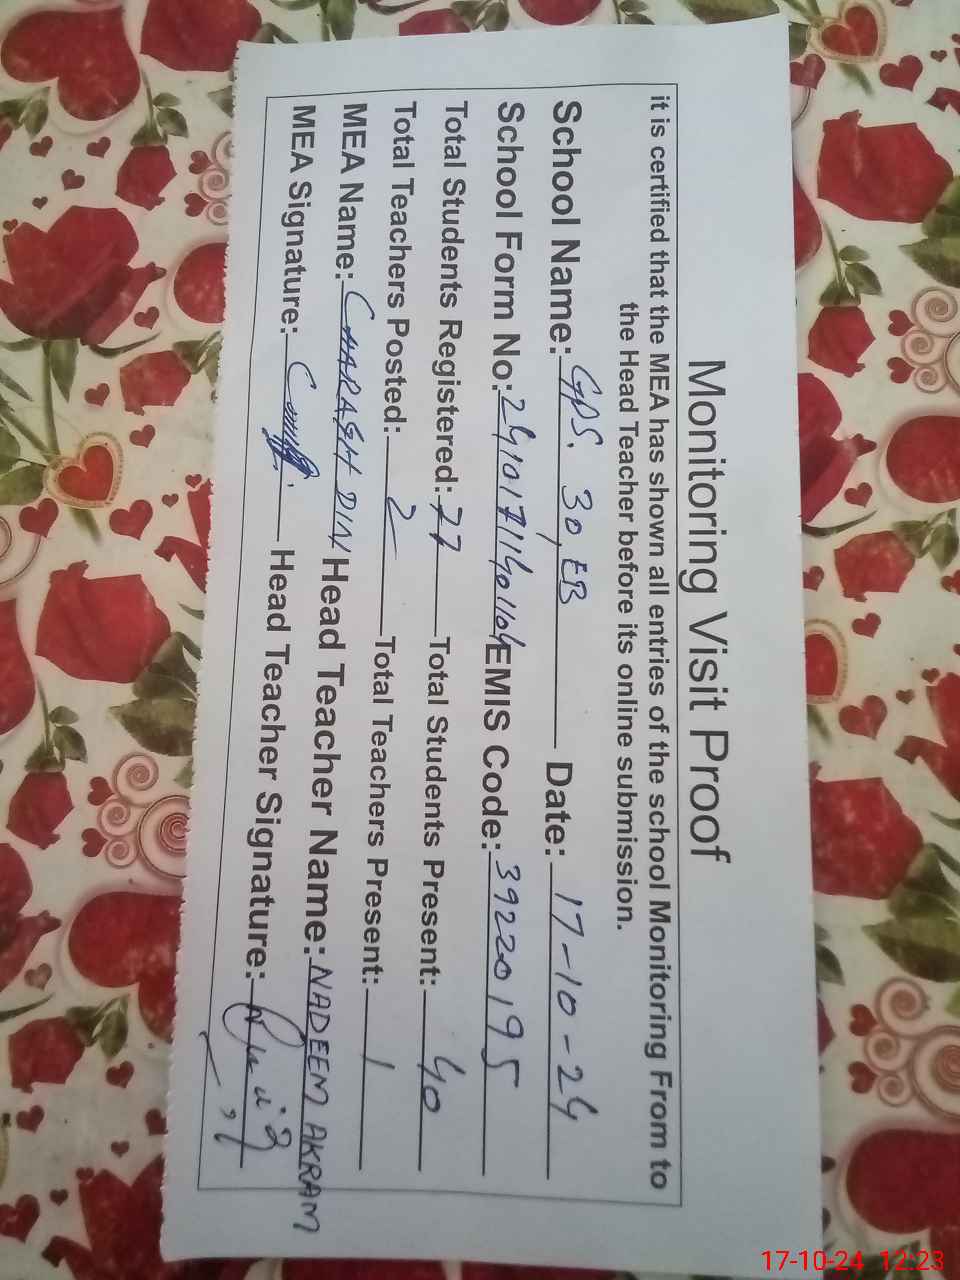 Monitoring Visit Proof
it is certified that the MEA has shown all entries of the school Monitoring From to
the Head Teacher before its online submission.
School Name: GPS. 30/EB Date: 17-10-24
School Form No: EMIS Code: 39220195
Total Students Registered: 77 Total Students Present: 40
Total Teachers Posted: 2 Total Teachers Present: 1
MEA Name: CHARAGH DIN Head Teacher Name: NADEEM AKRAM
MEA Signature: Head Teacher Signature:
17-10-24 12:23